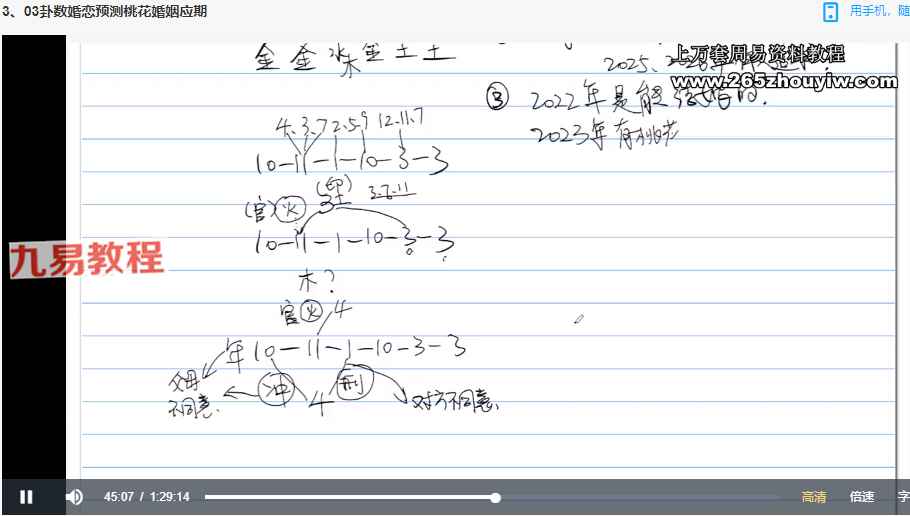 3、03卦数婚恋预测桃花婚姻应期
用手机，随
金 金 水 金 土 土
木
2025、2026年
上万套周易资料教程
www.265zhouyiw.com
③ 2022年是能结婚的.
2023年有桃花
4、3、7 2、5、9 12、11、7
10-11-1-10-3-3
(印)
(官)火 3-7-11
九易教程
10-11-1-10-3-3
木?
官火 4
年 10-11-1-10-3-3
父母 冲 刑
不同意. 4 对方不同意.
45:07 / 1:29:14
高清 倍速 字